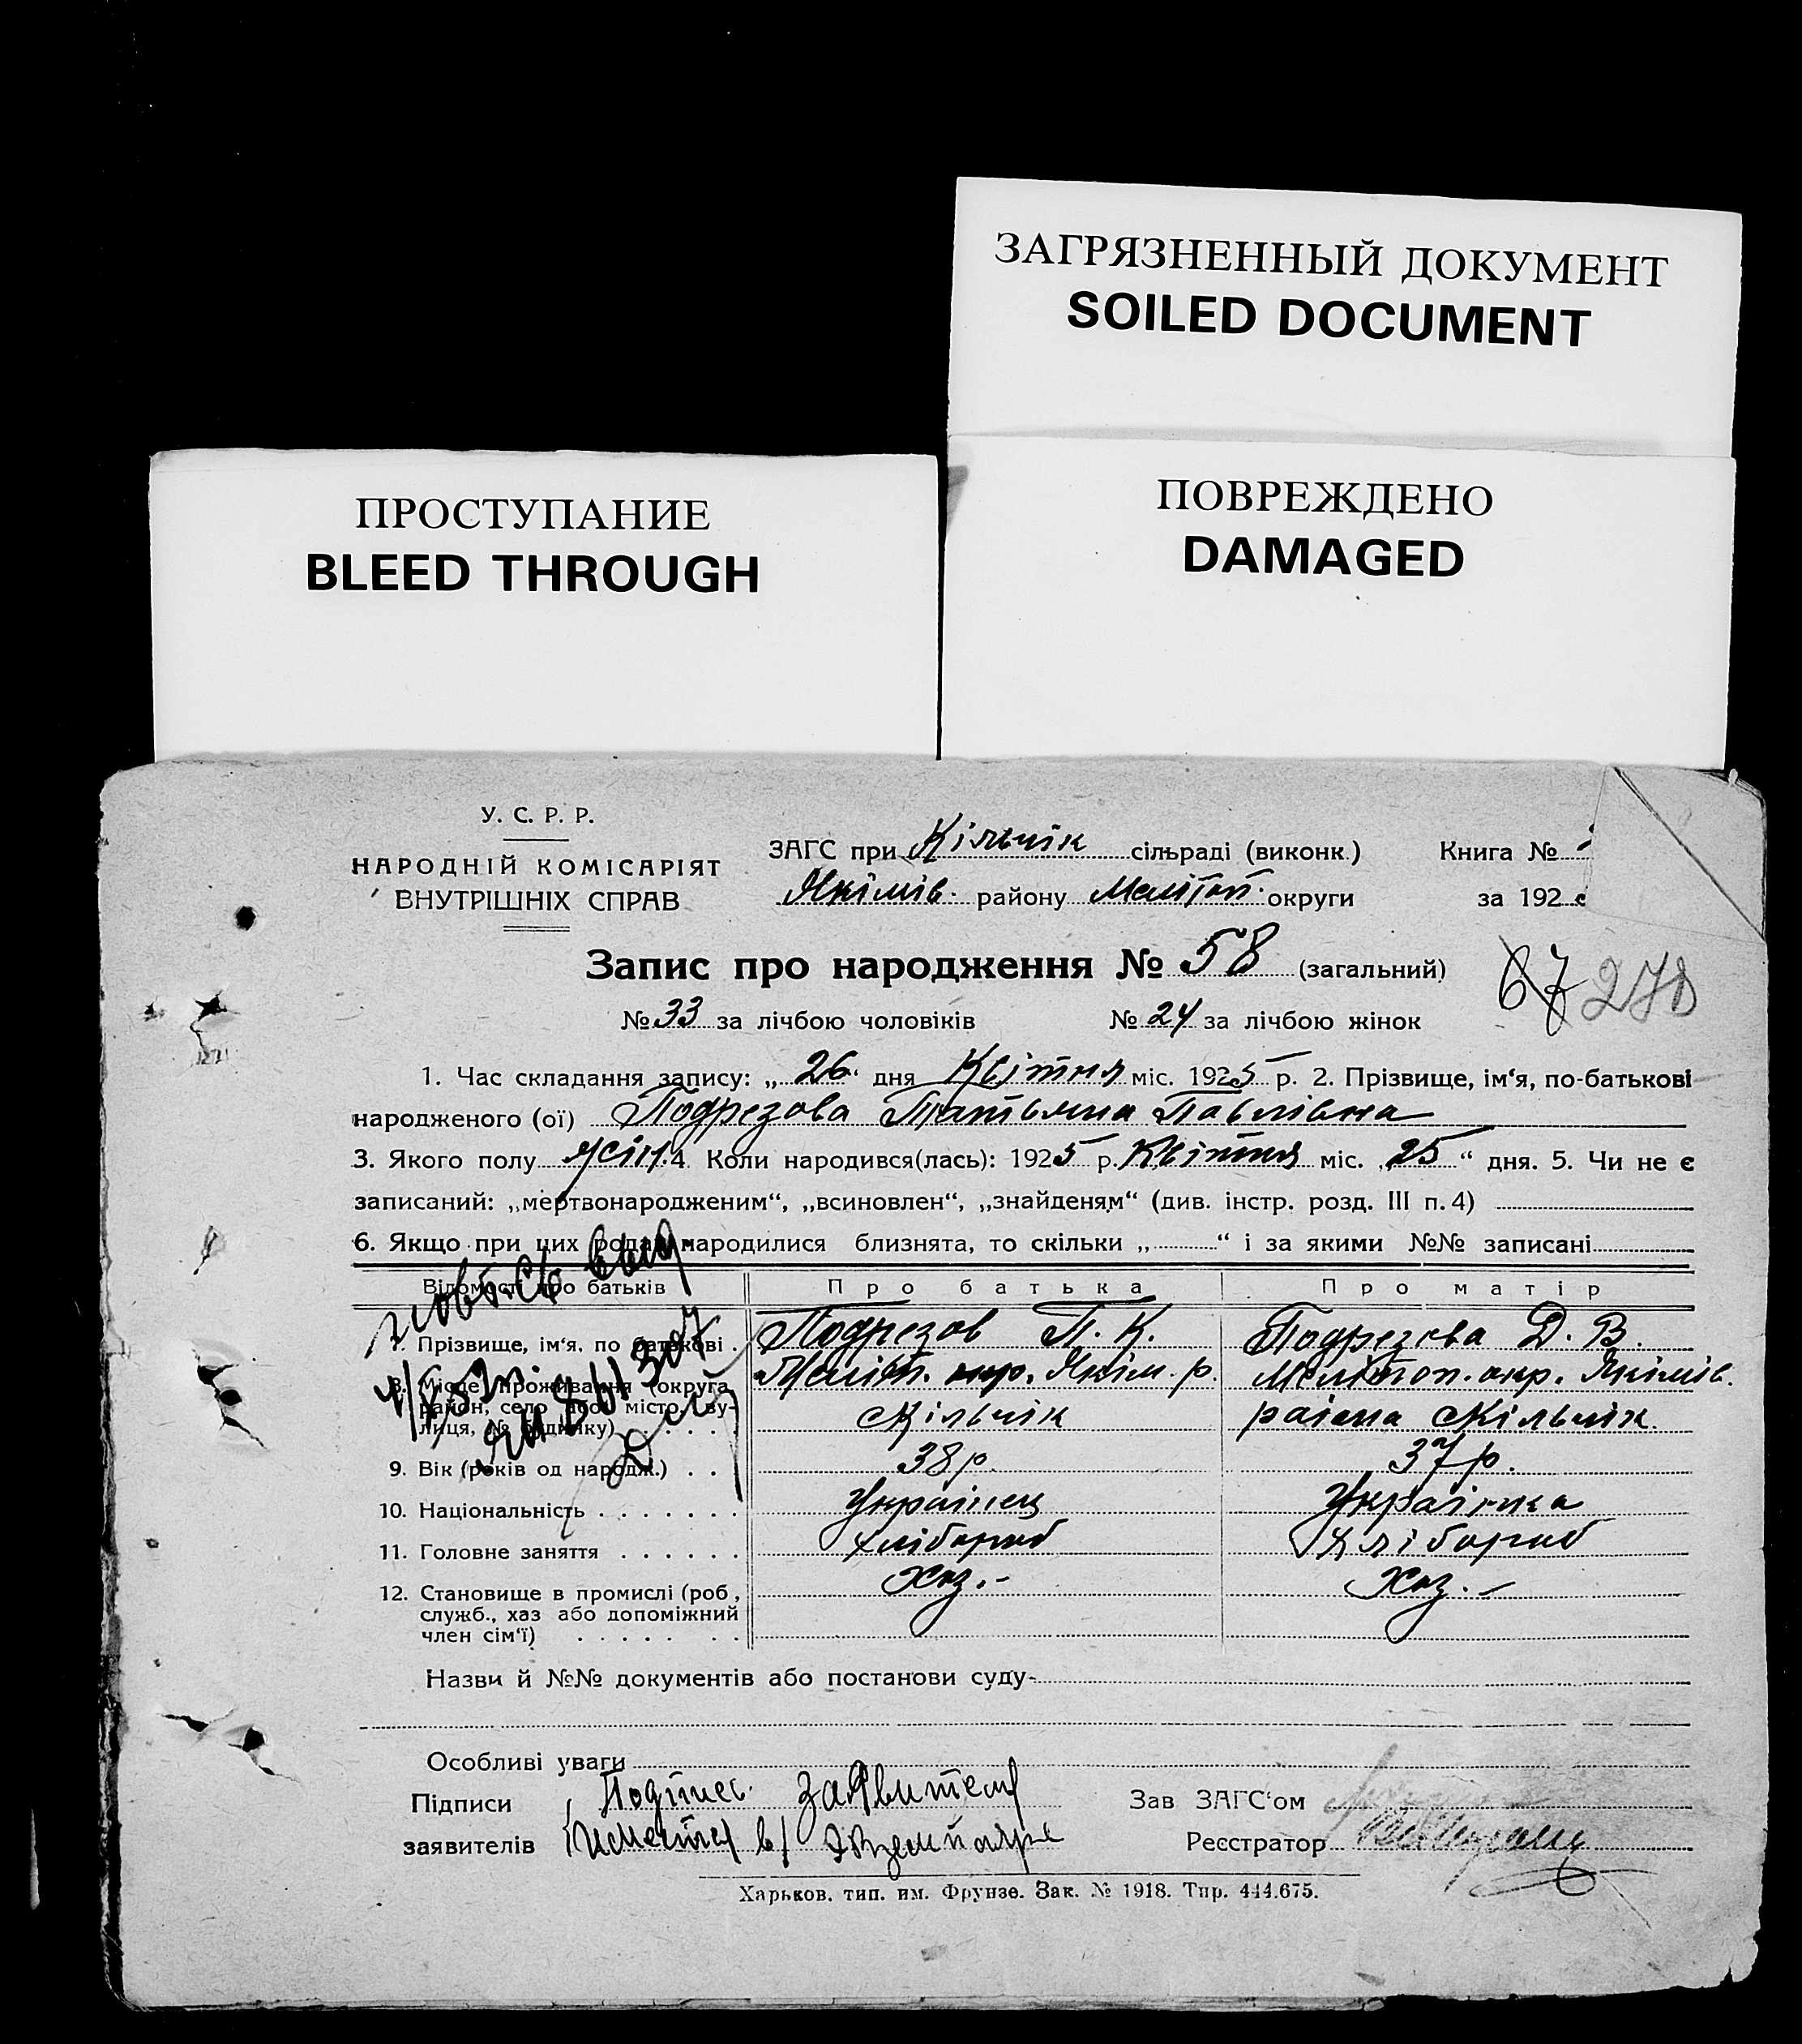 ЗАГРЯЗНЕННЫЙ ДОКУМЕНТ
SOILED DOCUMENT
ПРОСТУПАНИЕ
BLEED THROUGH
ПОВРЕЖДЕНО
DAMAGED
У. С. Р. Р.
НАРОДНІЙ КОМІСАРІЯТ
ВНУТРІШНІХ СПРАВ
ЗАГС при Кільчік сільраді (виконк.) Книга №
Якімів. району Мелітоп. округи за 192
Запис про народження № 58 (загальний)
67 278
№ 33 за лічбою чоловіків № 24 за лічбою жінок
1. Час складання запису: „26“ дня Квітня міс. 1925 р. 2. Прізвище, ім‘я, по-батькові
народженого (ої) Подрезова Татьяна Павлівна
3. Якого полу жін. 4. Коли народився(лась): 1925 р. Квітня міс. „25“ дня. 5. Чи не є
записаний: „мертвонародженим“, „всиновлен“, „знайденям“ (див. інстр. розд. III п. 4)
6. Якщо при цих родах народилися близнята, то скільки „ “ і за якими №№ записані
Відомості про батьків Про батька Про матір
7. Прізвище, ім‘я, по батькові . Подрезов П. К. Подрезова Д. В.
8. Місце проживання (округа, Меліт. окр. Якім. р. Мелітоп. окр. Якімів.
район, село або місто, ву-
лиця, № будинку) Кільчік раіона Кільчік.
9. Вік (років од народж.) . . . 38 р. 37 р.
10. Національність . . . . . . . Українец Українка
11. Головне заняття . . . . . . Хлібороб Хлібороб
12. Становище в промислі (роб., Хаз.- Хаз.-
служб., хаз або допоміжний
член сім‘ї) . . . . . . .
Назви й №№ документів або постанови суду-
Особливі уваги
Підписи Подпись заявителя Зав ЗАГС‘ом
заявителів имеется в Реєстратор
Харьков. тип. им. Фрунзе. Зак. № 1918. Тир. 444.675.